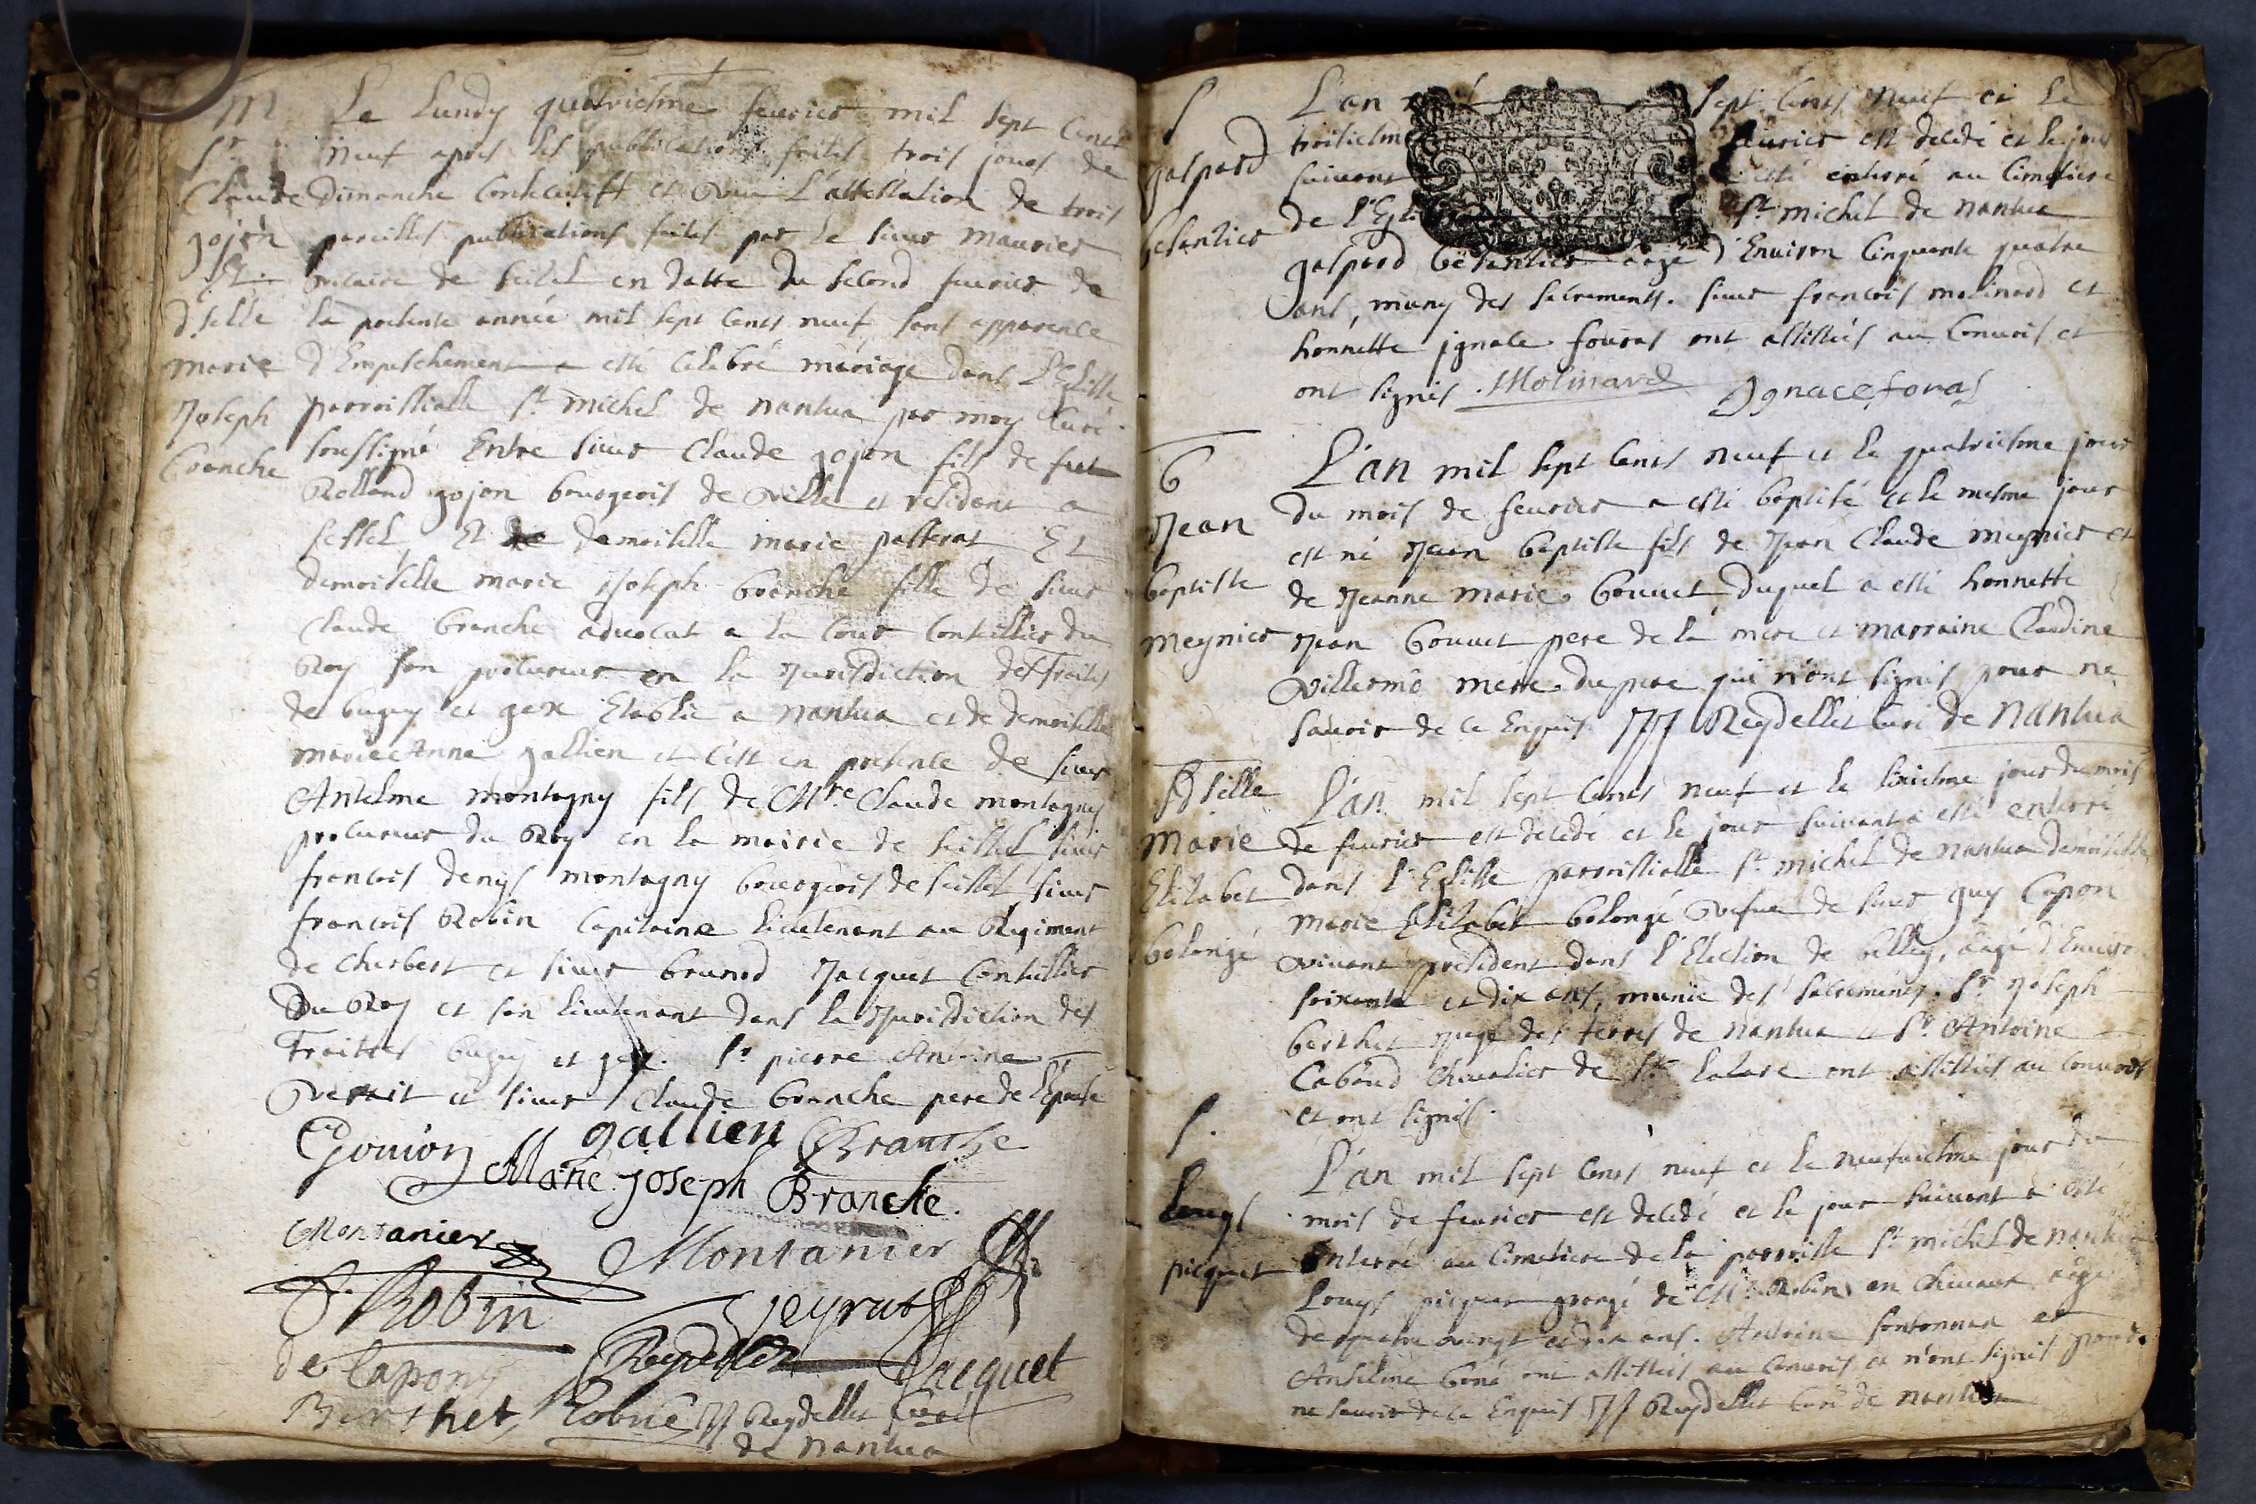 M
Sr
Claude
gojon
Et
dselle
marie
Joseph
Branche
Le Lundy quatriesme feurier mil sept Cents
neuf apres les publications faites trois jours de
dimanche Consecutifs et veu L'attestation de trois
pareilles publications faites par le sieur maurier
vicaire de seissel en datte du second feurier de
la presente année mil sept Cents neuf sans apparence
d'Empeschement a esté Celebré mariage dans L'Eglise
parroissialle St michel de nantua par moy Curé
soussigné Entre sieur Claude gojon fils de feu
Rolland gojon bourgeois de ville et residant a
sessel Et de demoiselle marie passerat Et
demoiselle marie Joseph branche fille de sieur
Claude branche aduocat a la Cour Conseillier du
Roy son procureur en la Jurisdiction des Traites
de bugey et gex Establie a nantua et de demoiselle
marie Anne gallien et c'est en presence de sieur
Antelme montagny fils de Mre Claude montagny
procureur du Roy en la mairie de seissel sieur
francois denys montagny bourgeois de seissel sieur
francois Robin Capitaine lieutenant au Regiment
de Charbert et sieur brunod Jacquet Conseillier
Du Roy et son lieutenant dans la Jurisdiction des
Traittes bugey et gex. Sr pierre Antoine
et sieur Claude branche pere de l'Epouse
Goujon gallien CBranche
Marie joseph Branche.
Montanier Montanier
F. Robin peyrut
de lapony Reydellet Jacquet
Berthet Robin JJ Reydellet Curé
de nantua
S
gaspard
besantier
L'an sept Cents neuf et le
troisiesme feurier est decedé et le jour
suivant esté enterré au Cimetiere
de l'Egli St michel de nantua
gaspard besantier aagé d'Enuiron Cinquante quatre
ans, muny des sacrements. sieur francois molinard et
honnette jgnace fouras ont assistés au Conuois et
ont signés. Molinard Jgnace foras
B
Jean
baptiste
meynier
L'an mil sept Cents neuf et le quatriesme jour
du mois de feurier a esté baptisé et le mesme jour
est né Jean baptiste fils de Jean Claude meynier et
de Jeanne Marie bouuet duquel a esté honnette
Jean bouuet pere de la mere et marraine Claudine
villermo mere du pere qui n'ont signés pour ne
sauoir de ce Enquis JJ Reydellet Curé de Nantua
S
dselle
Marie
Elizabet
bolongé
L'an mil sept Cents neuf et le sixiesme jour du mois
de feurier est decedé et le jour suiuant a esté enterré
dans l'Eglise parroissialle St michel de nantua demoiselle
Marie Elizabet bolongé vefue de sieur guy Capon
viuant president dans l'Election de belley, aagé d'Enuiron
soixante et dix ans, munie des sacrements. Sr Joseph
berthet juge des terres de nantua et Sr Antoine
Caboud Cheualier de St Lazare ont assistés au Conuois
et ont signés.
S.
Louys
picquet
L'an mil sept Cents neuf et le neufuiesme jour du
mois de feurier est decedé et le jour suiuant a esté
Enterré au Cimetiere de la parroisse St michel de nantua
Louys picquet grangé de Mr Robin en Cheuaux aagé
de quatre vingt et dix ans. Antoine fontannaz et
Anthelme Goné ont assistés au Conuois et n'ont signés pour
ne sauoir de ce Enquis JJ Reydellet Curé de nantua